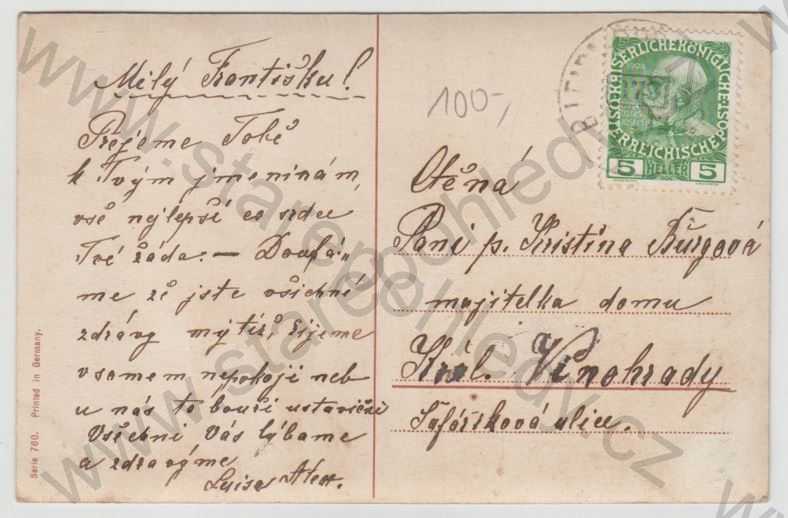 Milý Františku!
Přejeme Tobě
k Tvým jmeninám,
vše nejlepší co srdce
Tvé žádá. — Doufá„
me že jste všichni
zdrávy mýtéž, žijeme
v samem nepokoji neb
u nás to bouří ustavičně
Všichni Vás líbáme
a zdravýme
Luisa
100-,
KAISERLICHE KÖNIGLICHE
ÖSTERREICHISCHE POST
5 HELLER 5
Ctěná
Paní p. Kristina
majitelka domu
Král. Vinohrady
Šafaříková ulice.
Serie 760. Printed in Germany.
www.starepohledy.cz